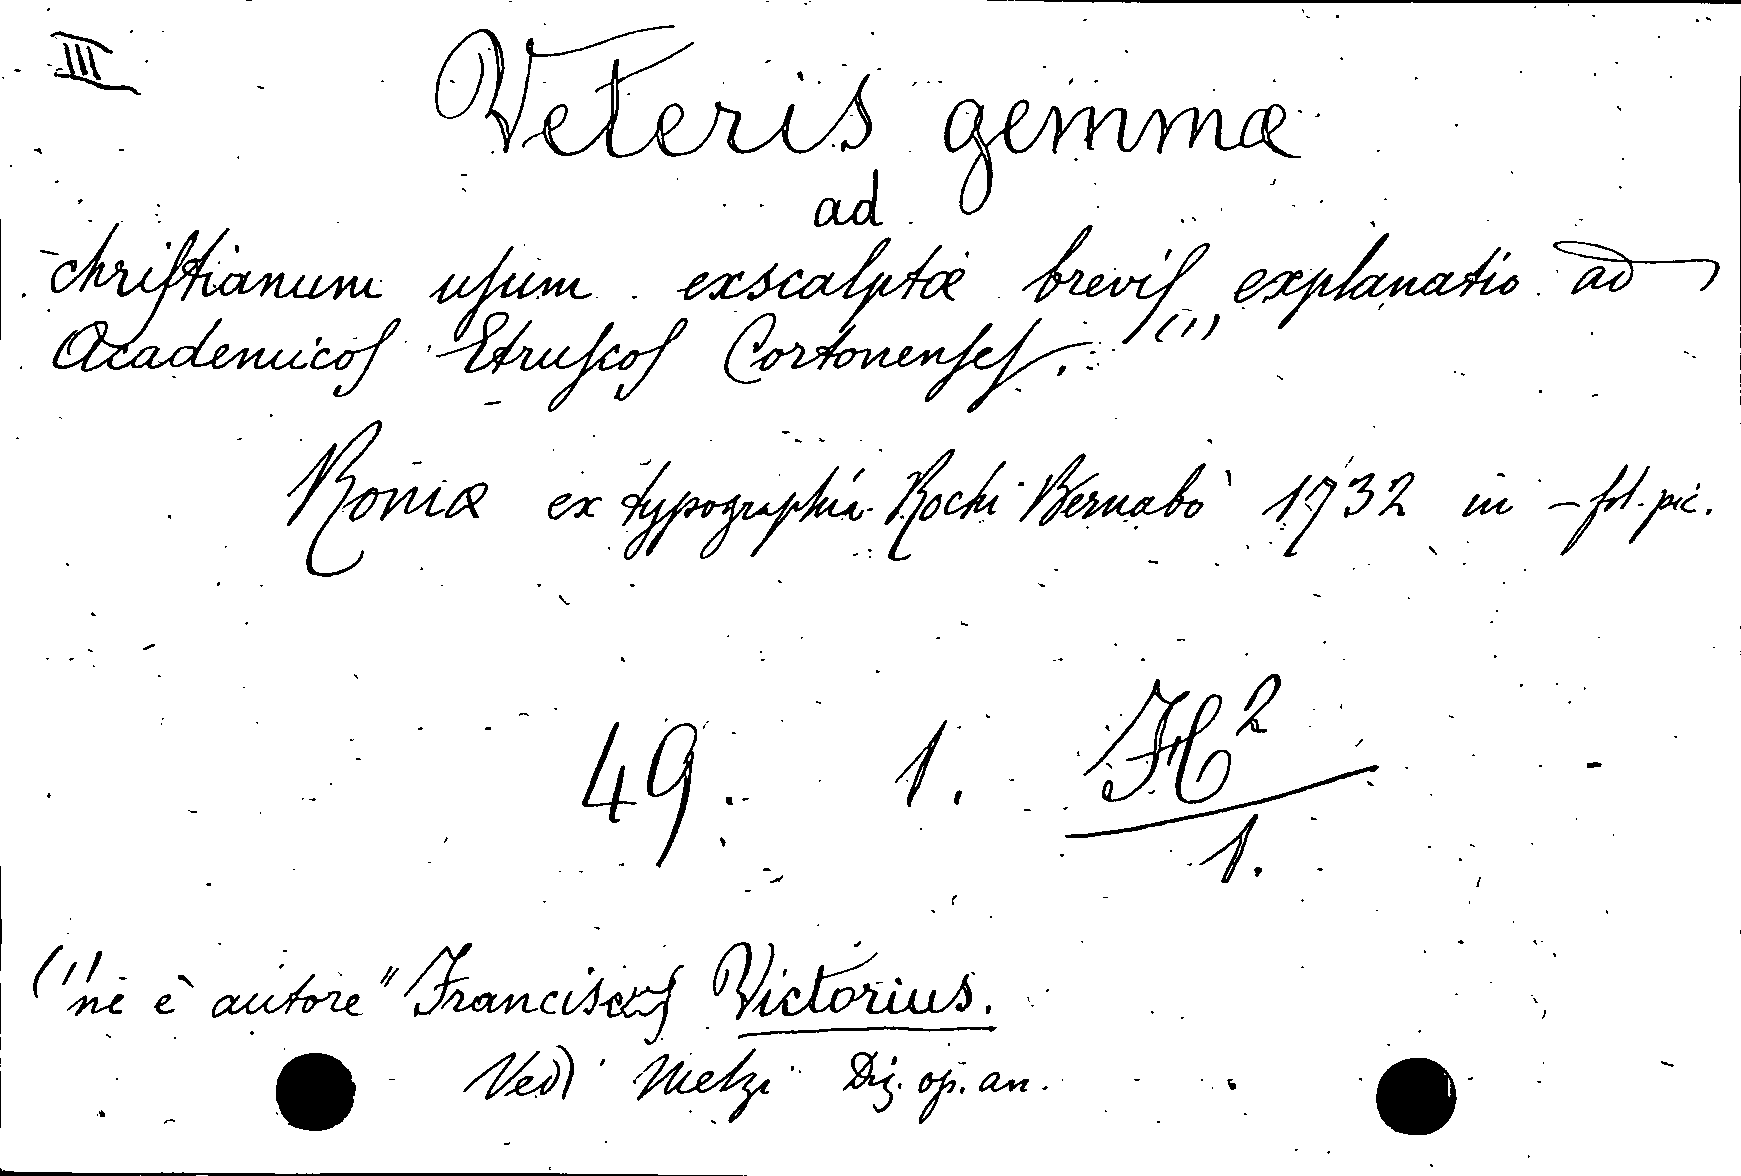 III
Veteris gemmæ
ad
chriſtianum uſum exscalptæ breviſ (1) explanatio ad
Academicoſ Etruſcoſ Cortonenſeſ.
Romæ ex typographia Rochi Bernabò 1732 in - fol. pic.
49. 1. H²
1.
(1) ne è autore "Franciscuſ Victorius.
Vedi Melzi Diz. op. an.